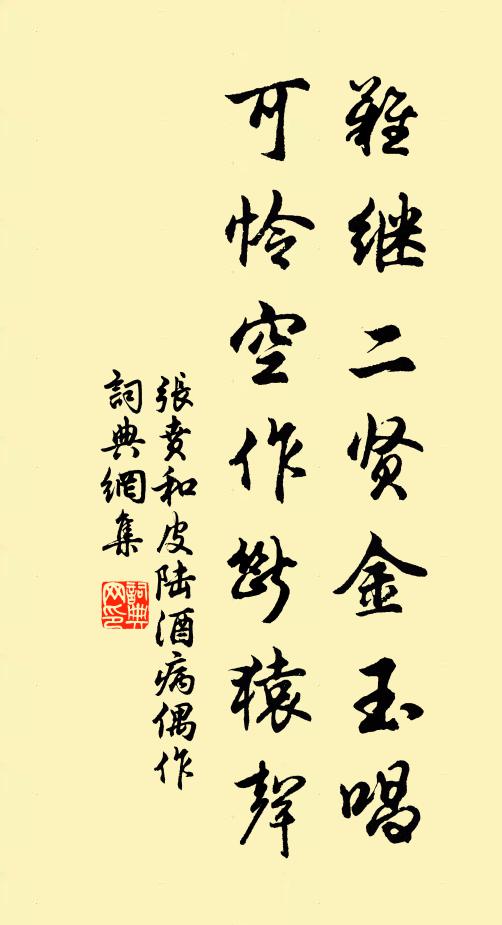 難继二贤金玉唱
可怜空作断猿聲
張賁和皮陆酒病偶作
詞典網集
詞典网印